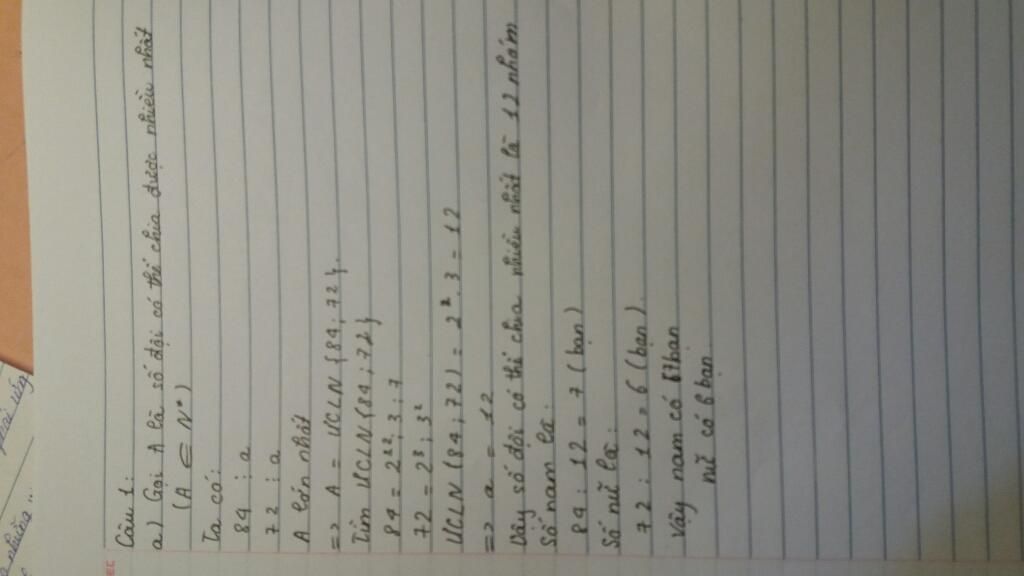 Câu 1:
a) Gọi A là số đội có thể chia được nhiều nhất
(A ∈ N*)
Ta có:
84 ⋮ a
72 ⋮ a
A lớn nhất
=> A = ƯCLN {84; 72}.
Tìm ƯCLN {84; 72}
84 = 2²; 3; 7
72 = 2³; 3²
ƯCLN (84; 72) = 2². 3 = 12
=> a = 12
Vậy số đội có thể chia nhiều nhất là 12 nhóm
Số nam là:
84 : 12 = 7 (bạn)
Số nữ là:
72 : 12 = 6 (bạn).
Vậy nam có 7 bạn
nữ có 6 bạn.